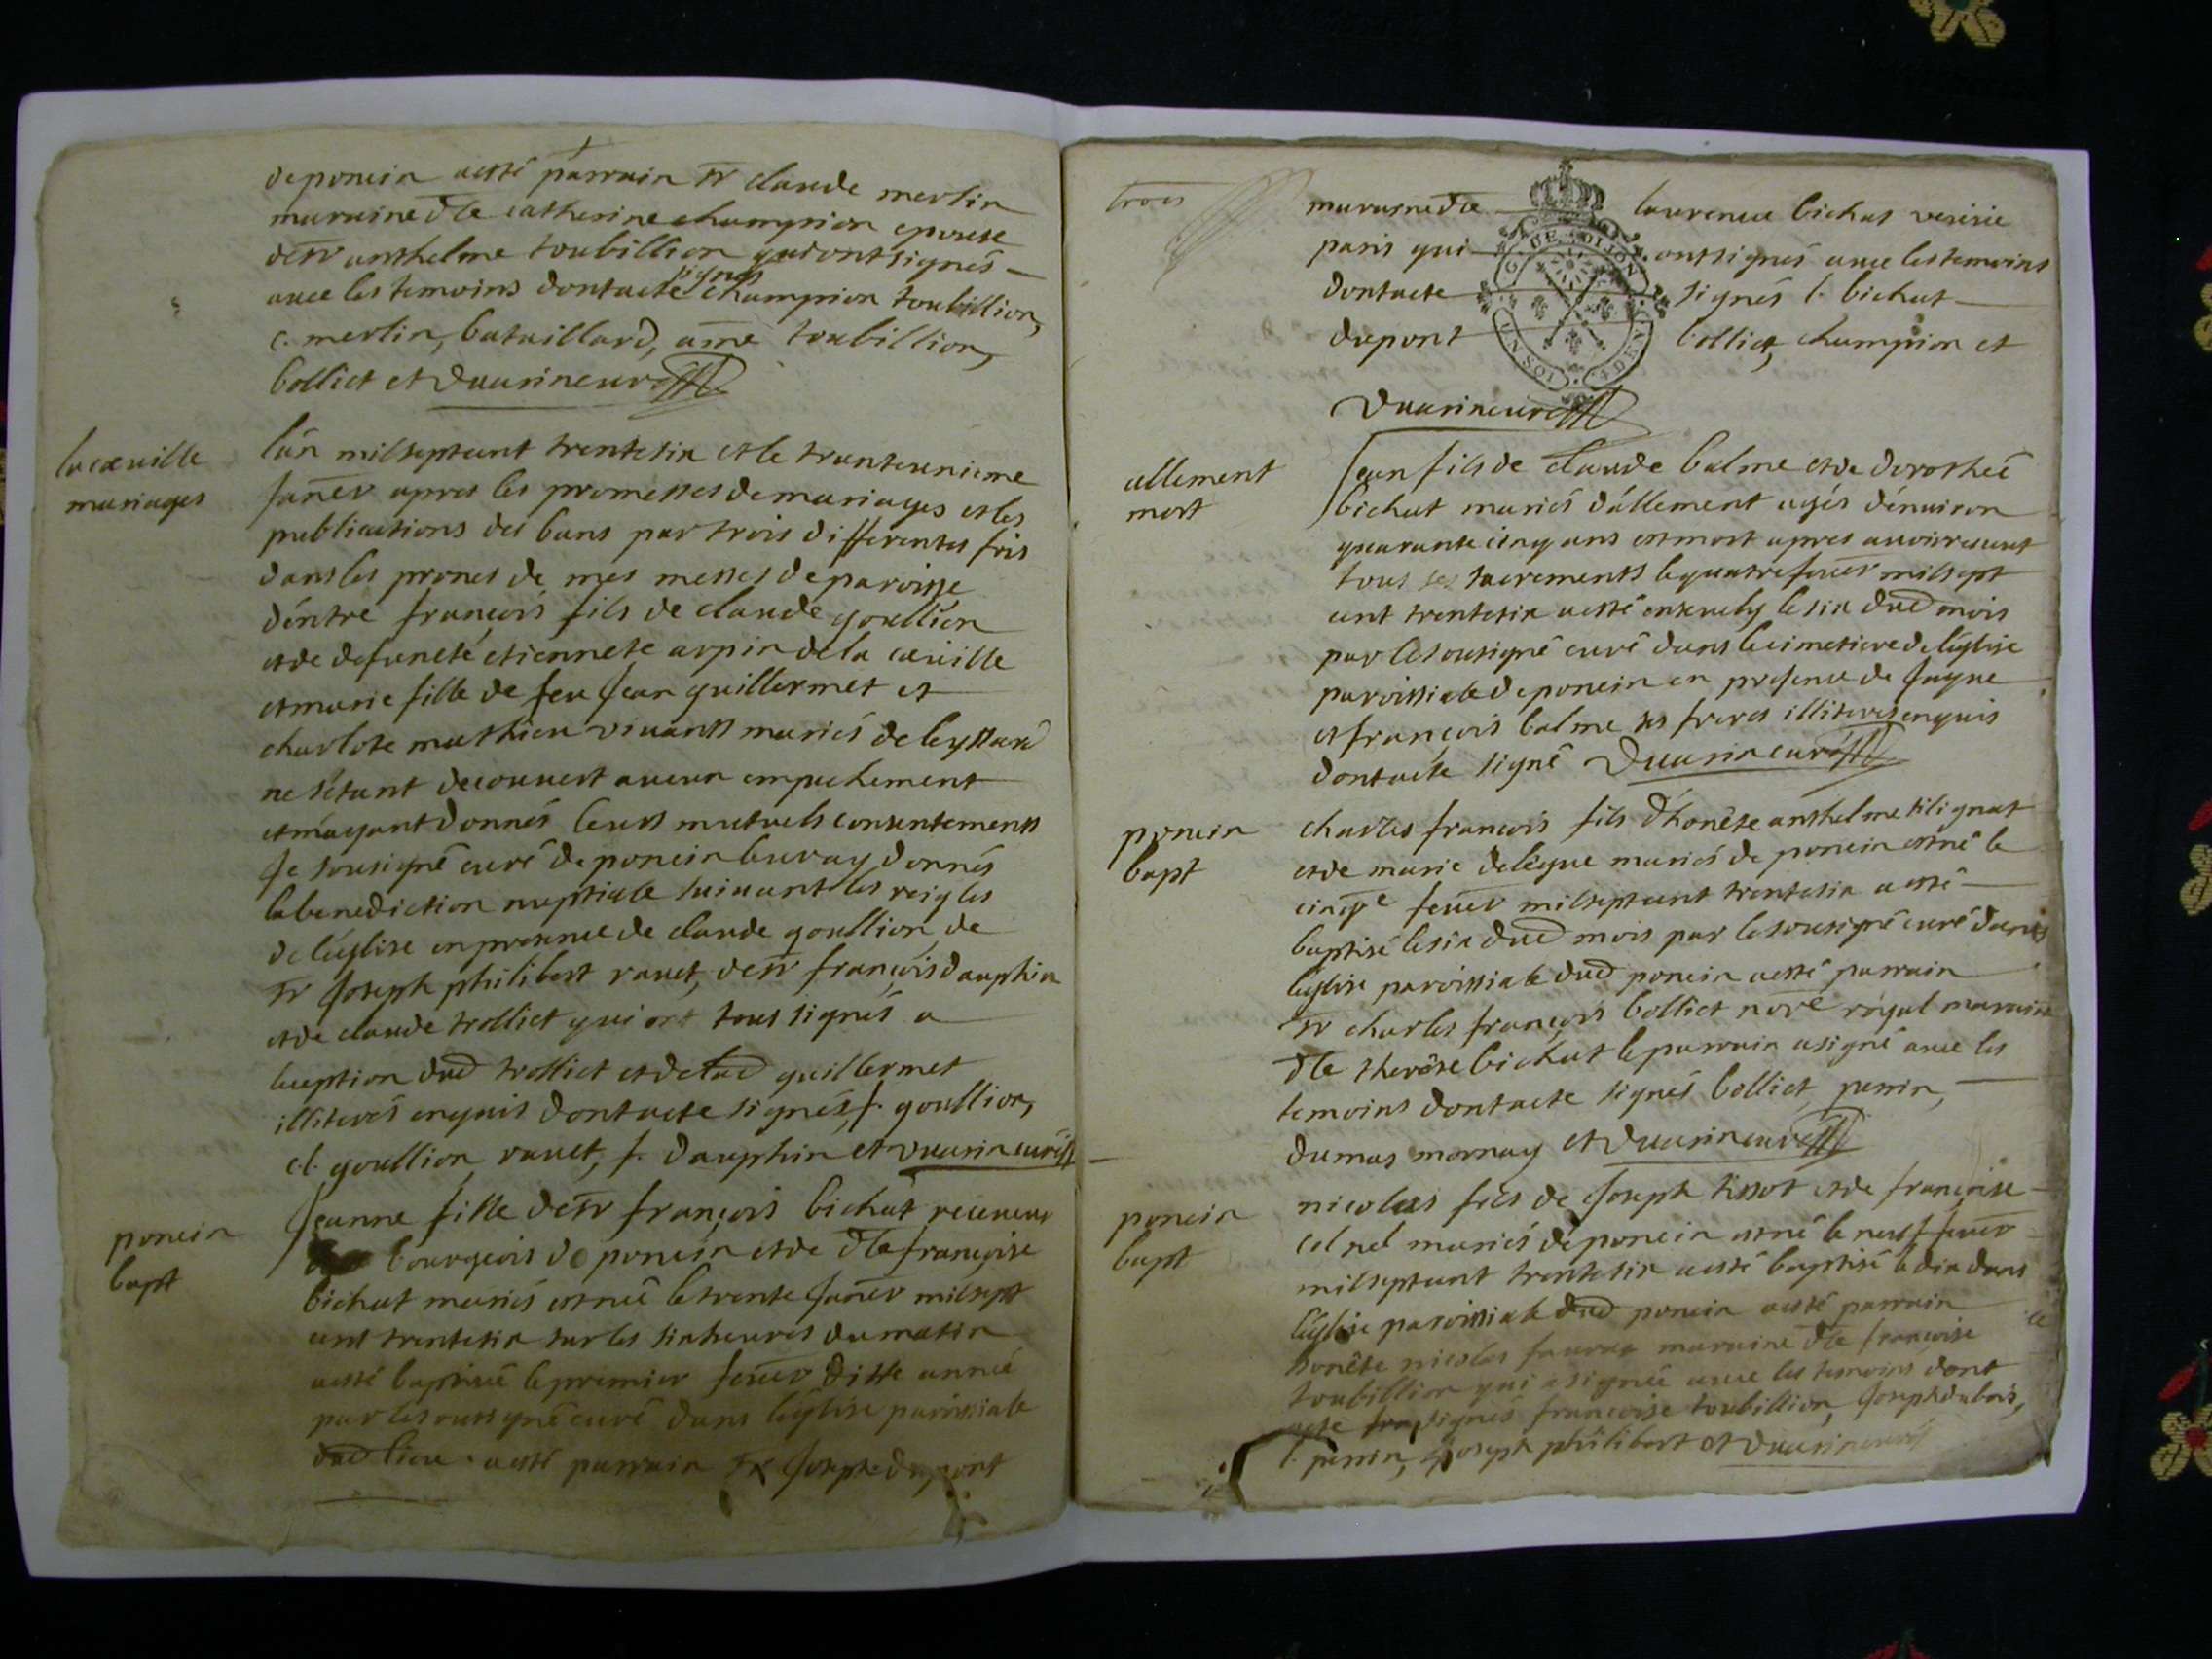 de poncin a esté parrain sr claude merlin
maraine dlle catherine champion epouse
de sr anthelme toubillion qui ont signés
avec les temoins dont acte signés champion toubillion,
c. merlin, bataillard, ame toubillion,
bolliet et vuarin curé
la coeuille
mariages
l'an mil sept cent trente six et le trante unieme
janer apres les promesses de mariages et les
publications des bans par trois differentes fois
dans les prones de mes messes de paroisse
d'entre françois fils de claude goullion
et de defuncte etiennete arpin de la coeuille
et marie fille de feu jean guillermet et
charlote mathieu vivants mariés de leyssard
ne s'etant decouvert aucun empechement
et m'ayant donnés leurs mutuels consentements
je sousigné curé de poncin leur ay donnés
la benediction nuptiale suivant les reigles
de l'eglise en presence de claude goullion, de
sr joseph philibert ravet, de sr françois dauphin
et de claude trolliet qui ont tous signés a
l'eception dud trolliet et de lad guillermet
illiterés enquis dont acte signés, f. goullion,
cl. goullion, ravet, f. dauphin et vuarin curé
poncin
bapt
jeanne fille de sr françois bichat receveur
bourgeois de poncin et de dlle françoise
bichat mariés est née le trente janer mil sept
cent trente six sur les six heures du matin
a esté baptisée le premier fever ditte année
par le sousigné curé dans l'eglise paroissiale
dud lieu a esté parrain sr joseph dupont
trois
maraine dlle laurence bichat
paris qui ont signés avec les temoins
dont acte signés l. bichat
dupont bolliet, champion et
vuarin curé
allement
mort
jean fils de claude balme et de dorotheé
bichat mariés d'allement agés d'environ
quarante cinq ans est mort apres avoir receut
tous ses sacrements le quatre fever mil sept
cent trente six a esté ensevely le six dud mois
par le sousigné curé dans le cimetiere de l'eglise
paroissiale de poncin en presence de
et françois balme ses freres illiterés enquis
dont acte signé vuarin curé
poncin
bapt
charles françois fils d'honête anthelme tilignat
et de marie deleigue mariés de poncin est né le
cinqe fever mil sept cent trente six a esté
baptisé le six dud mois par le sousigné curé dans
l'eglise paroissiale dud poncin a esté parrain
sr charles françois bolliet nore royal maraine
dlle therése bichat le parrain a signé avec les
temoins dont acte signés bolliet, perrin,
dumas mornay et vuarin curé
poncin
bapt
nicolas fils de joseph tissot et de françoise
mariés de poncin est né le neuf fever
mil sept cent trente six a esté baptisé le dix dans
l'eglise paroissiale dud poncin a esté parrain
honête nicolas maraine dlle françoise
toubillion qui a signée avec les temoins dont
acte signés françoise toubillion, joseph dubois,
l. perrin, joseph philibert et vuarin curé